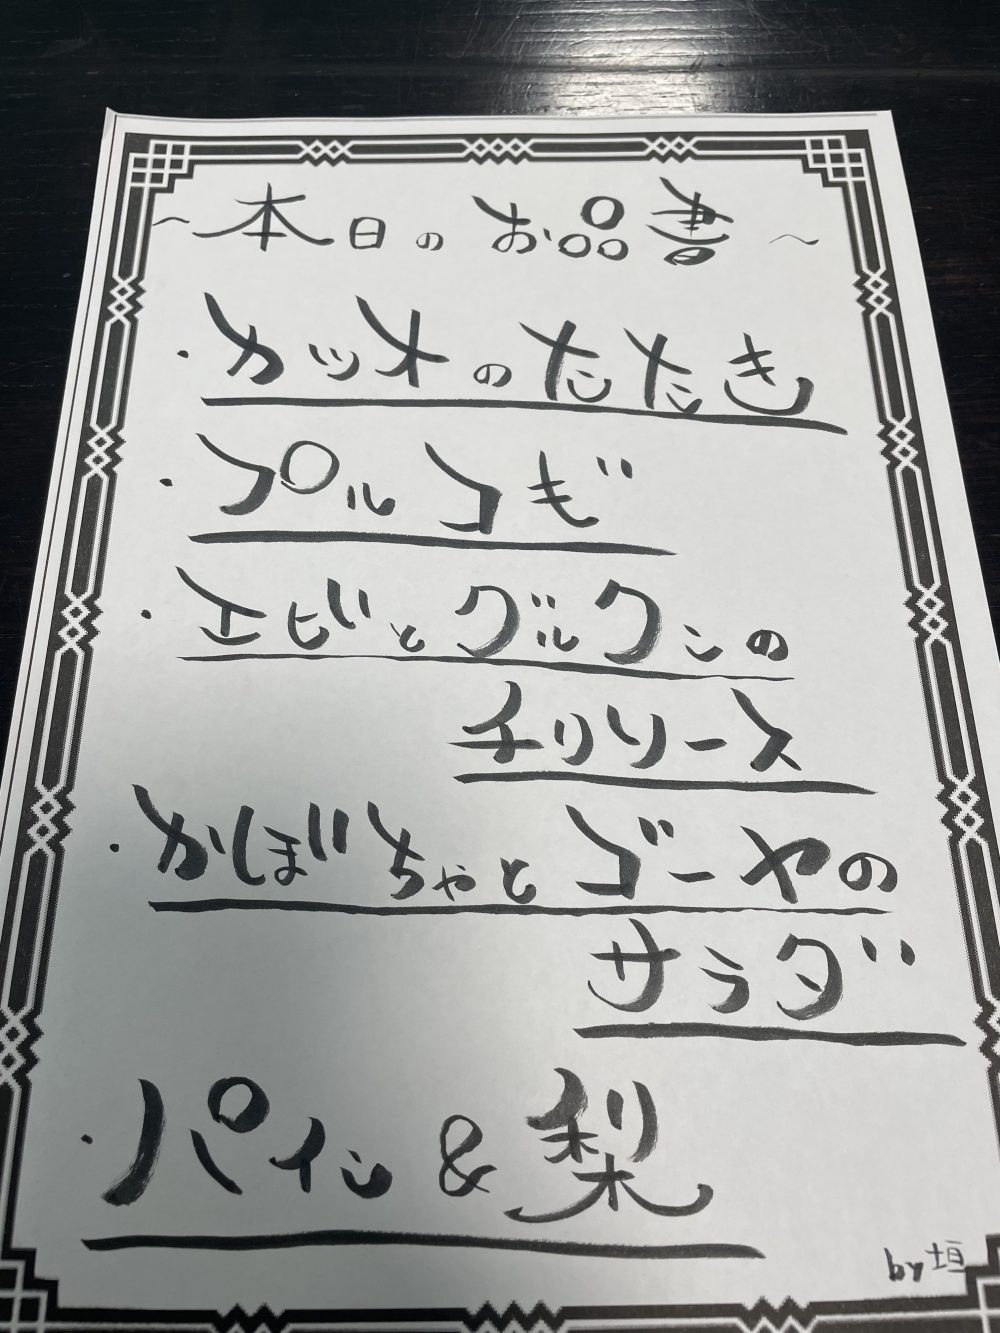 ～本日のお品書～
・カツオのたたき
・プルコギ
・エビとグルクンの
チリソース
・かぼちゃとゴーヤの
サラダ
・パイン&梨
by垣